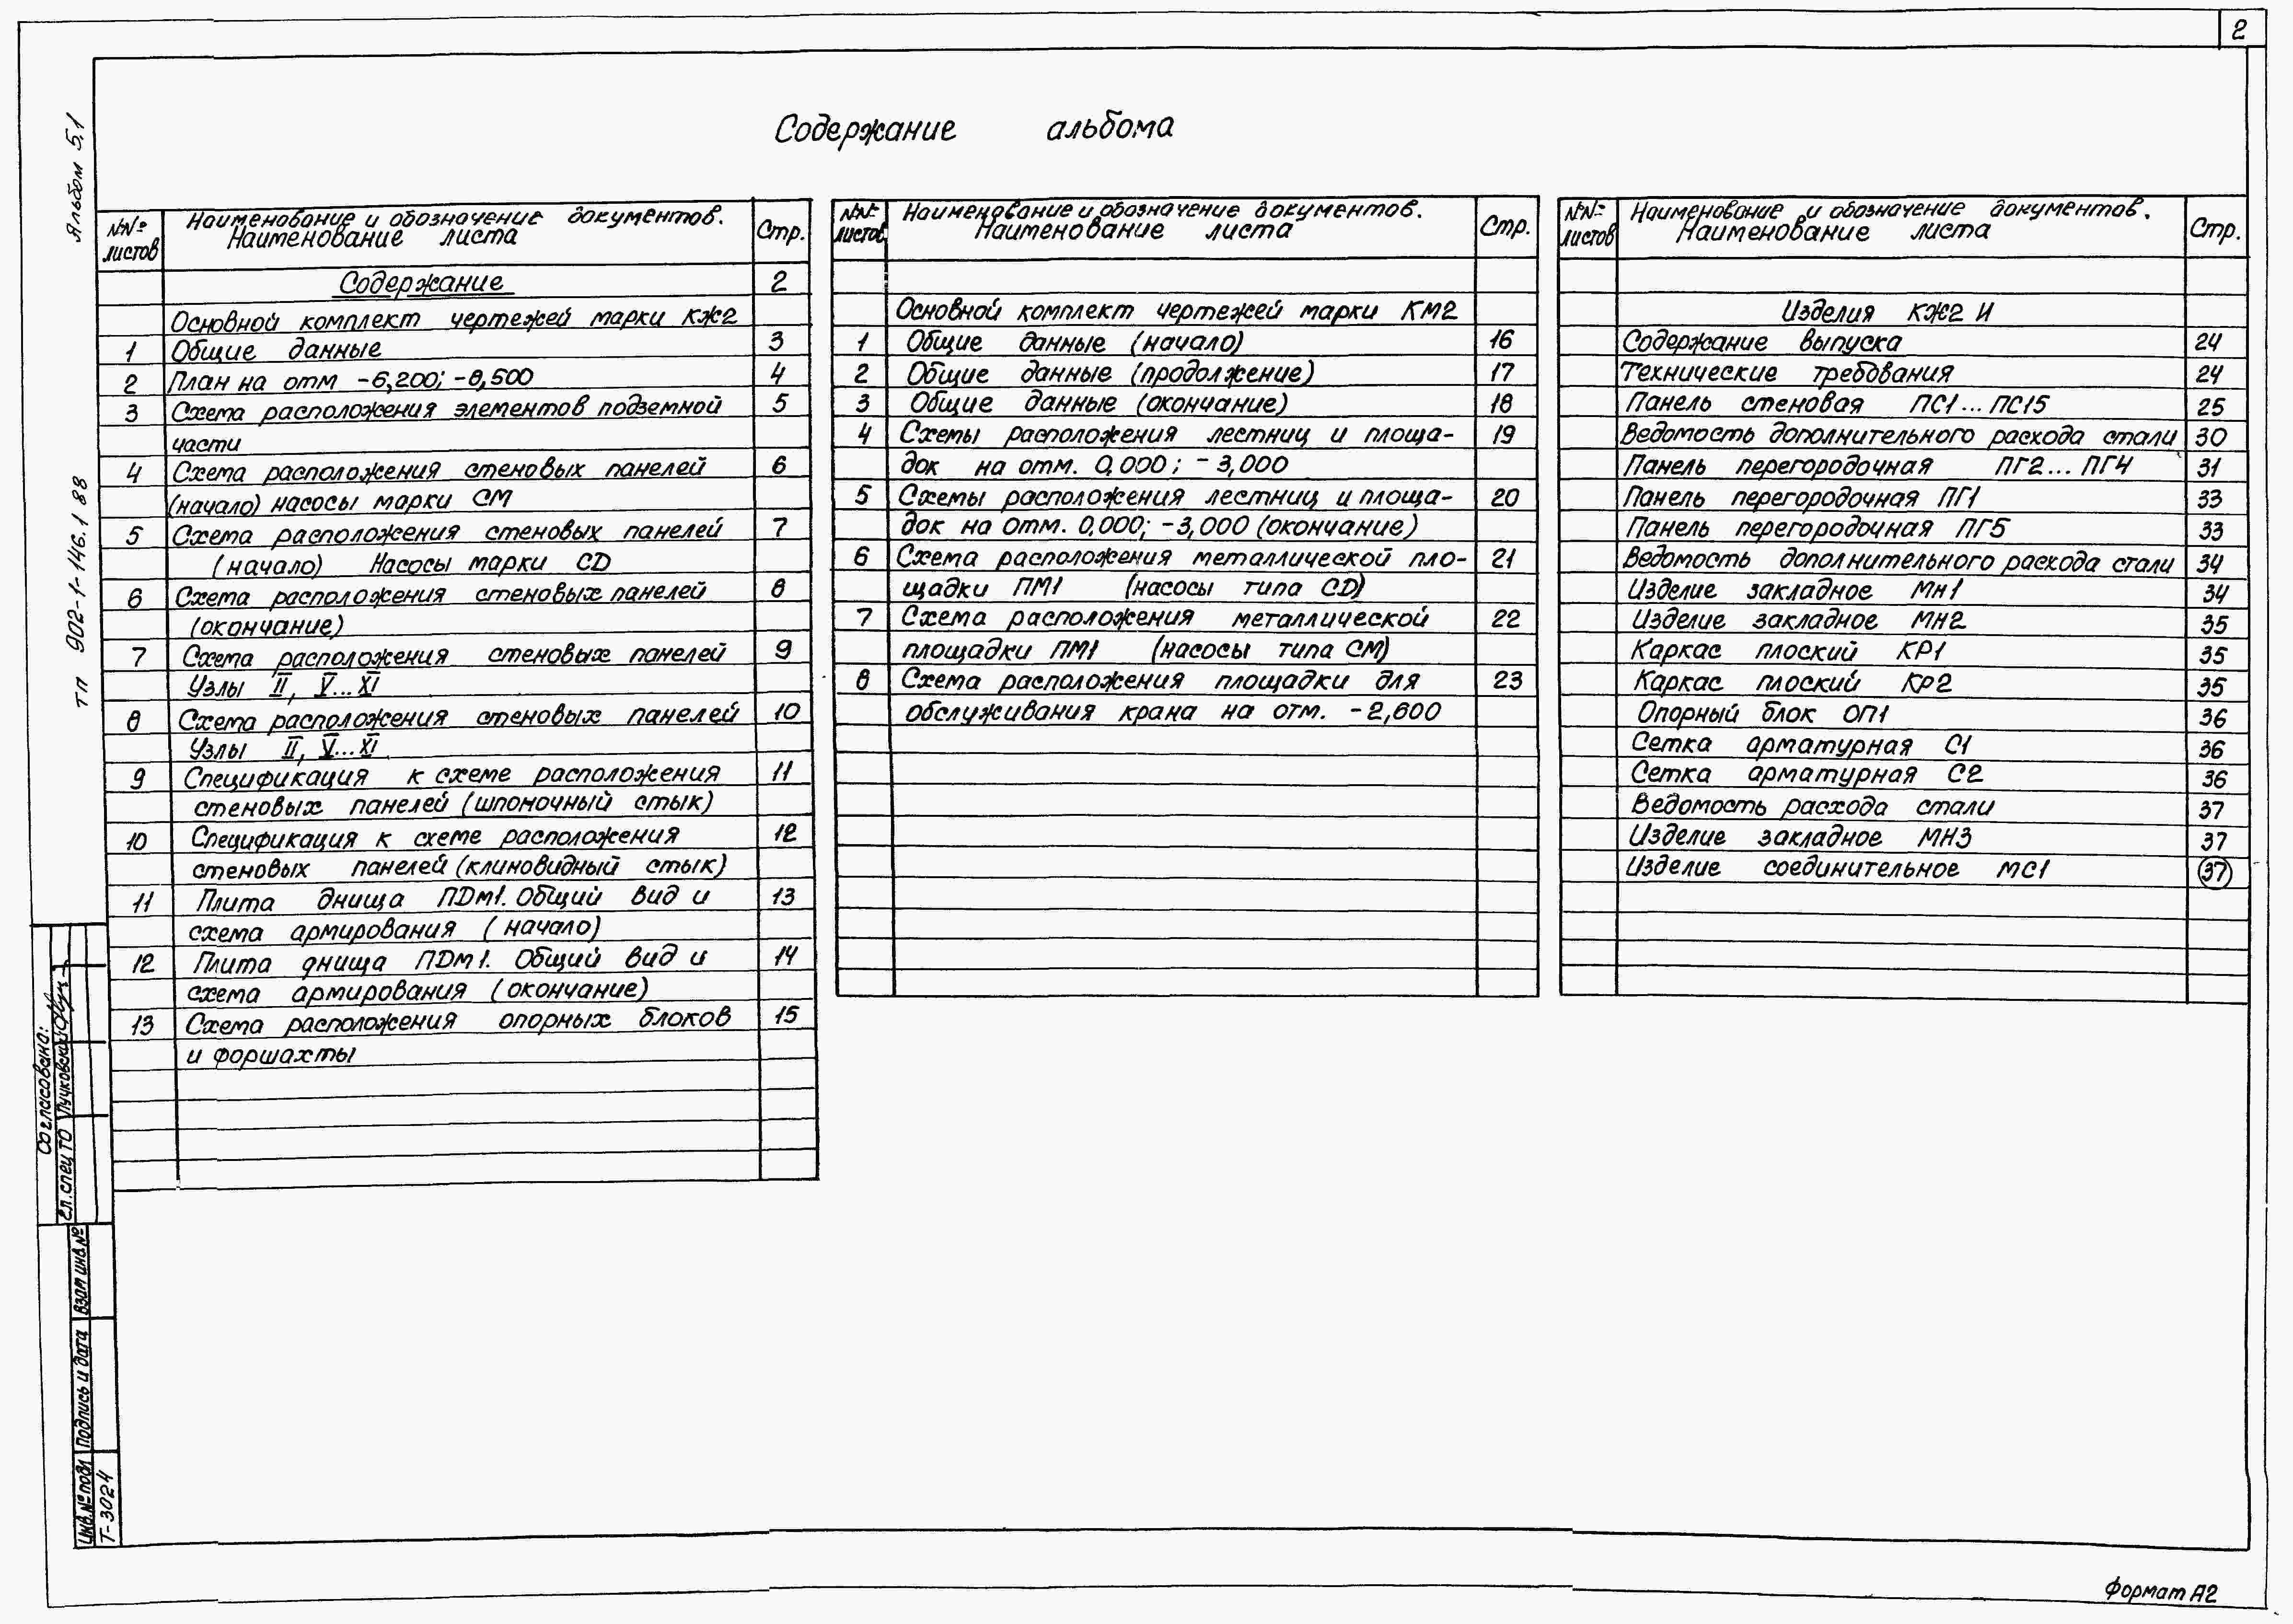 2
Содержание альбома
Альбом 5.1
ТП 902-1-146.1 88
№№ листов
Наименование и обозначение документов. Наименование листа
Стр.
Содержание 2
Основной комплект чертежей марки КЖ2
1 Общие данные 3
2 План на отм -6,200; -8,500 4
3 Схема расположения элементов подземной 5
части
4 Схема расположения стеновых панелей 6
(начало) насосы марки СМ
5 Схема расположения стеновых панелей 7
(начало) Насосы марки СD
6 Схема расположения стеновых панелей 8
(окончание)
7 Схема расположения стеновых панелей 9
Узлы II, V...XI
8 Схема расположения стеновых панелей 10
Узлы II, V...XI
9 Спецификация к схеме расположения 11
стеновых панелей (шпоночный стык)
10 Спецификация к схеме расположения 12
стеновых панелей (клиновидный стык)
11 Плита днища ПДм1. Общий вид и 13
схема армирования (начало)
12 Плита днища ПДм1. Общий вид и 14
схема армирования (окончание)
13 Схема расположения опорных блоков 15
и форшахты
№№ листов
Наименование и обозначение документов. Наименование листа
Стр.
Основной комплект чертежей марки КМ2
1 Общие данные (начало) 16
2 Общие данные (продолжение) 17
3 Общие данные (окончание) 18
4 Схемы расположения лестниц и площа- 19
док на отм. 0,000; -3,000
5 Схемы расположения лестниц и площа- 20
док на отм. 0,000; -3,000 (окончание)
6 Схема расположения металлической пло- 21
щадки ПМ1 (насосы типа СD)
7 Схема расположения металлической 22
площадки ПМ1 (насосы типа СМ)
8 Схема расположения площадки для 23
обслуживания крана на отм. -2,600
№№ листов
Наименование и обозначение документов. Наименование листа
Стр.
Изделия КЖ2 И
Содержание выпуска 24
Технические требования 24
Панель стеновая ПС1...ПС15 25
Ведомость дополнительного расхода стали 30
Панель перегородочная ПГ2...ПГ4 31
Панель перегородочная ПГ1 33
Панель перегородочная ПГ5 33
Ведомость дополнительного расхода стали 34
Изделие закладное Мн1 34
Изделие закладное МН2 35
Каркас плоский КР1 35
Каркас плоский КР2 35
Опорный блок ОП1 36
Сетка арматурная С1 36
Сетка арматурная С2 36
Ведомость расхода стали 37
Изделие закладное МН3 37
Изделие соединительное МС1 37
Согласовано:
Гл.спец ТО
Взам инв.№
Подпись и дата
Инв.№ подл
Т-3024
Формат А2